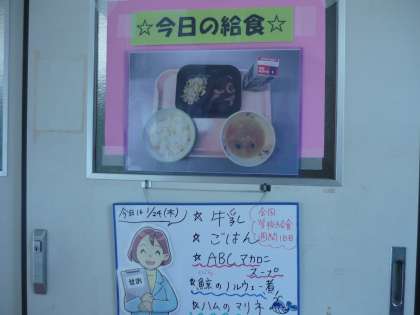 ☆今日の給食☆
今日は 1/24(木)
☆ 牛乳
☆ ごはん
☆ ABCマカロニ
スープ
☆鯨のノルウェー煮
☆ハムのマリネ
全国
学校給食
週間1日目